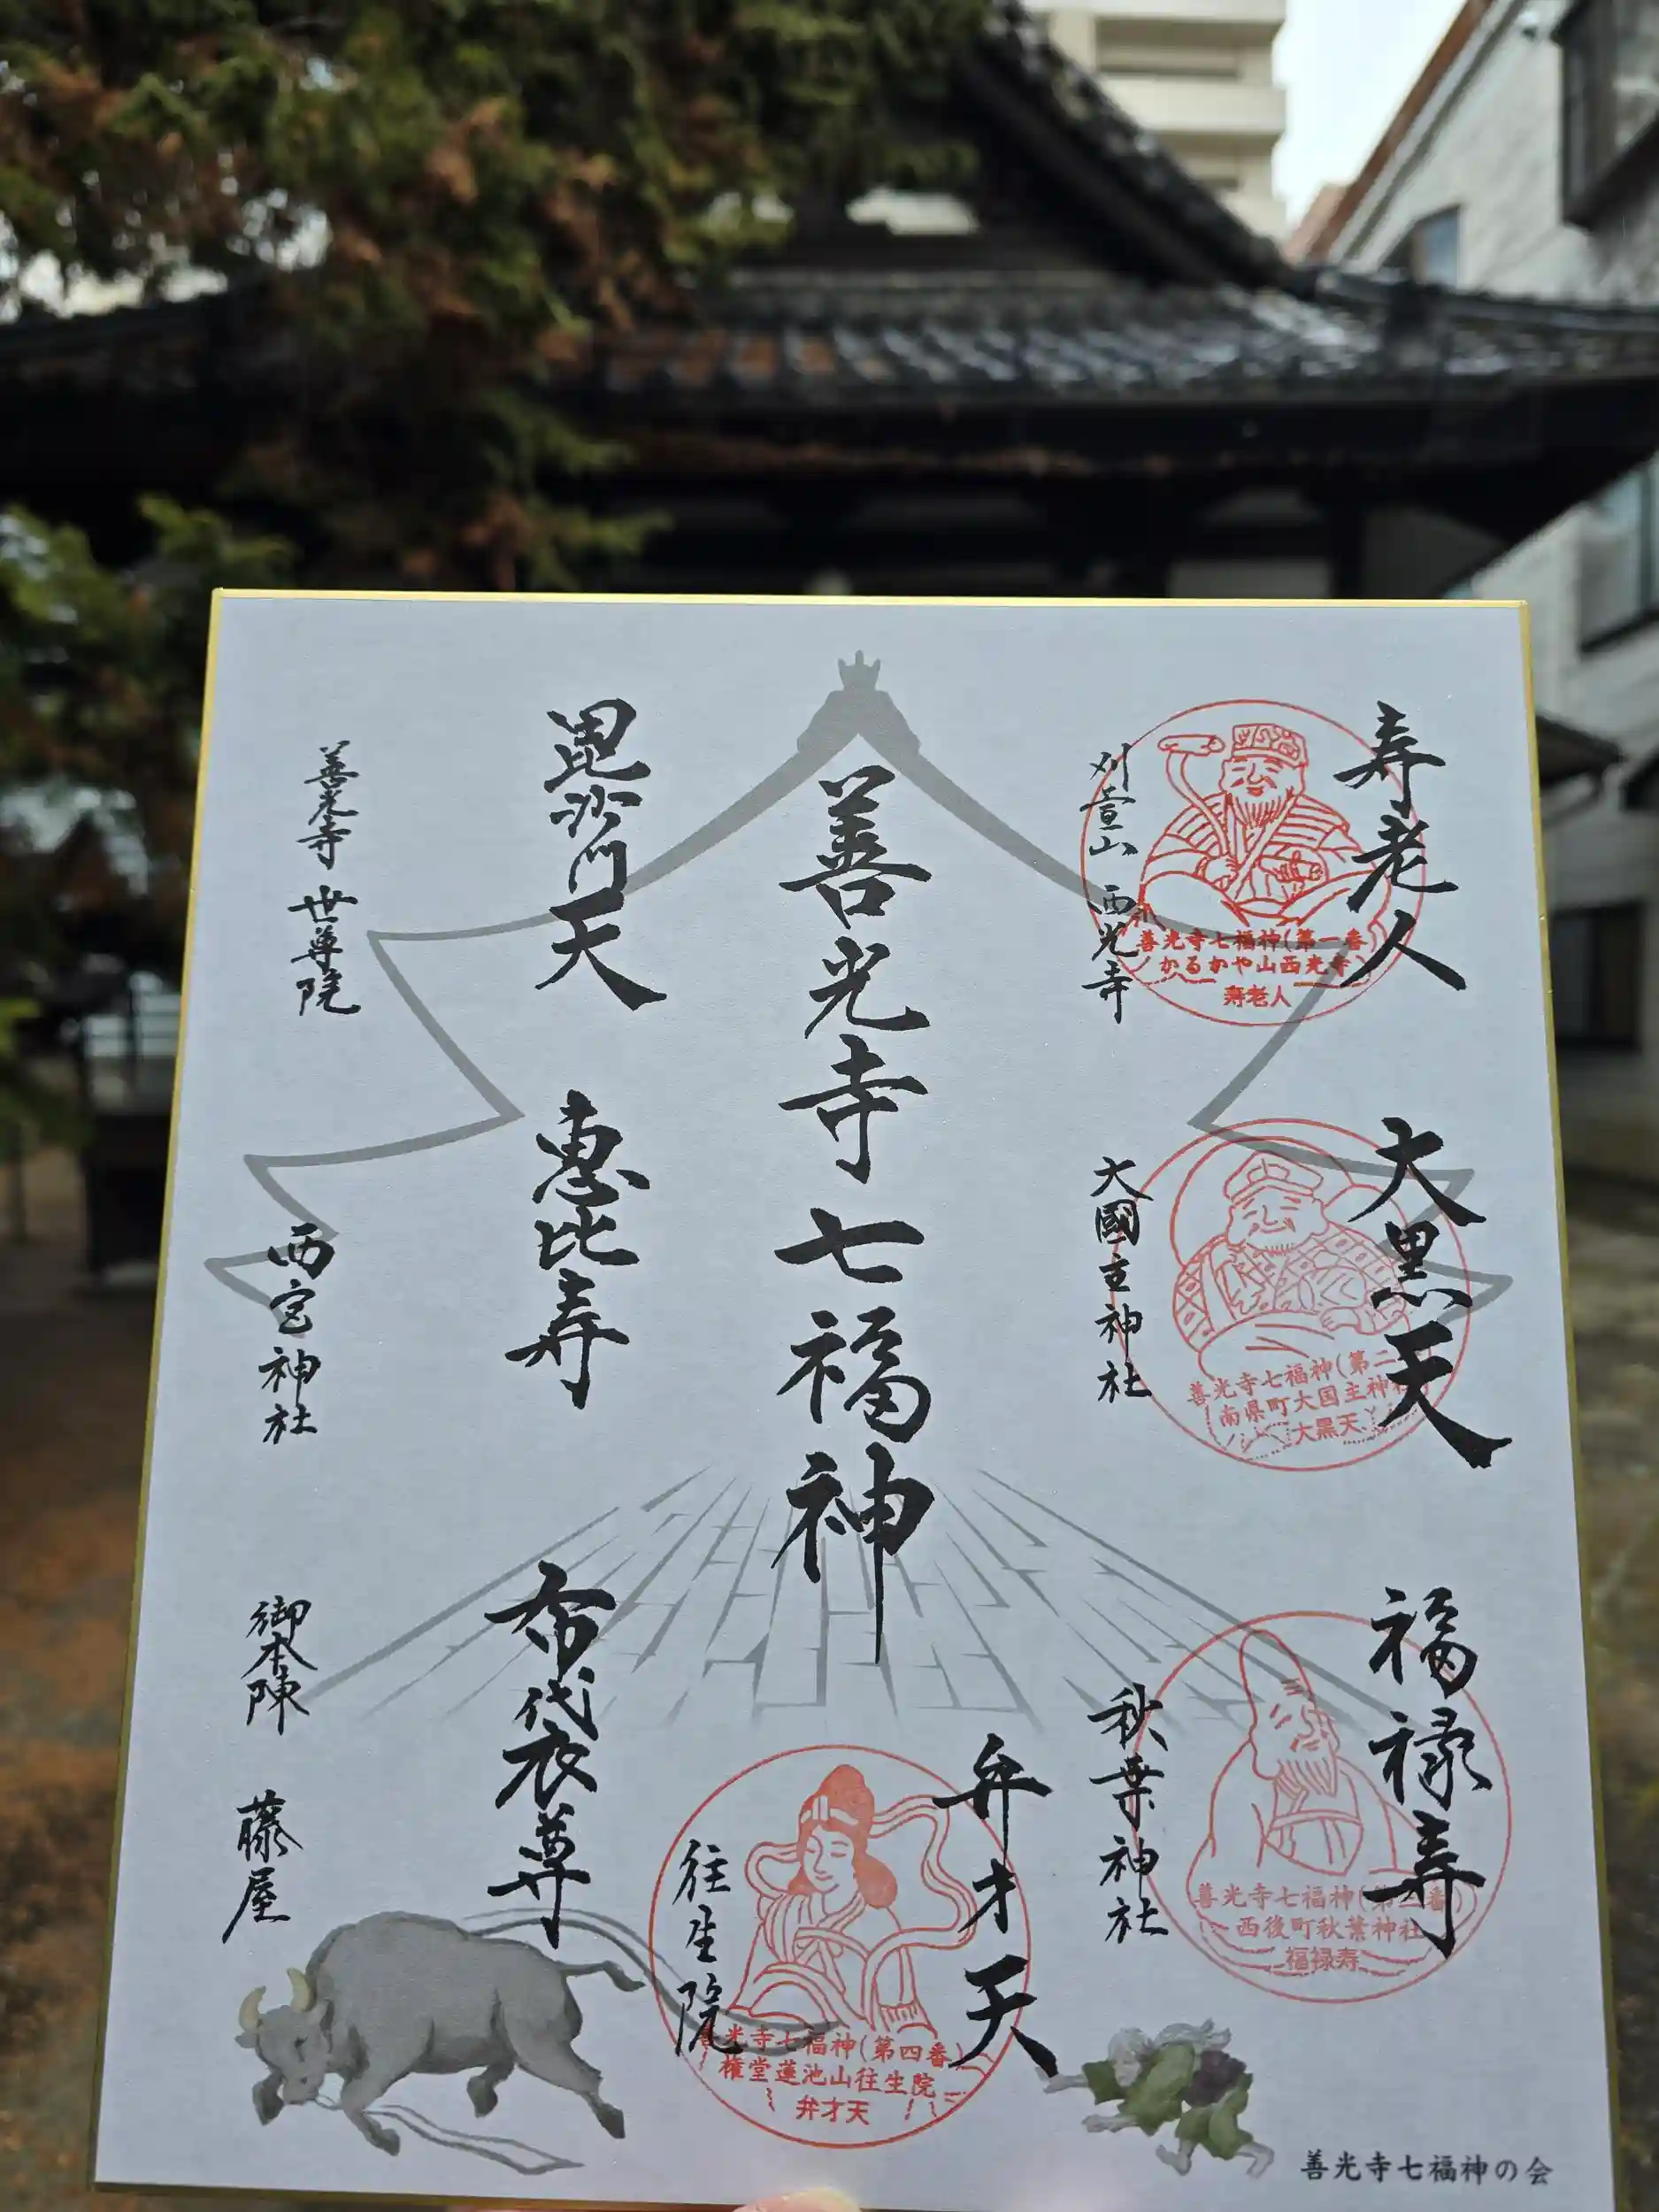 寿老人
刈萱山 西光寺
善光寺七福神(第一番)
かるかや山西光寺
寿老人
大黒天
大國主神社
善光寺七福神(第二
南県町大国主神社
大黒天
福禄寿
秋葉神社
善光寺七福神(第三番)
西後町秋葉神社
福禄寿
弁才天
往生院
光寺七福神(第四番)
権堂蓮池山往生院
弁才天
善光寺七福神
毘沙門天
善光寺 世尊院
恵比寿
西宮神社
布袋尊
御本陳 藤屋
善光寺七福神の会